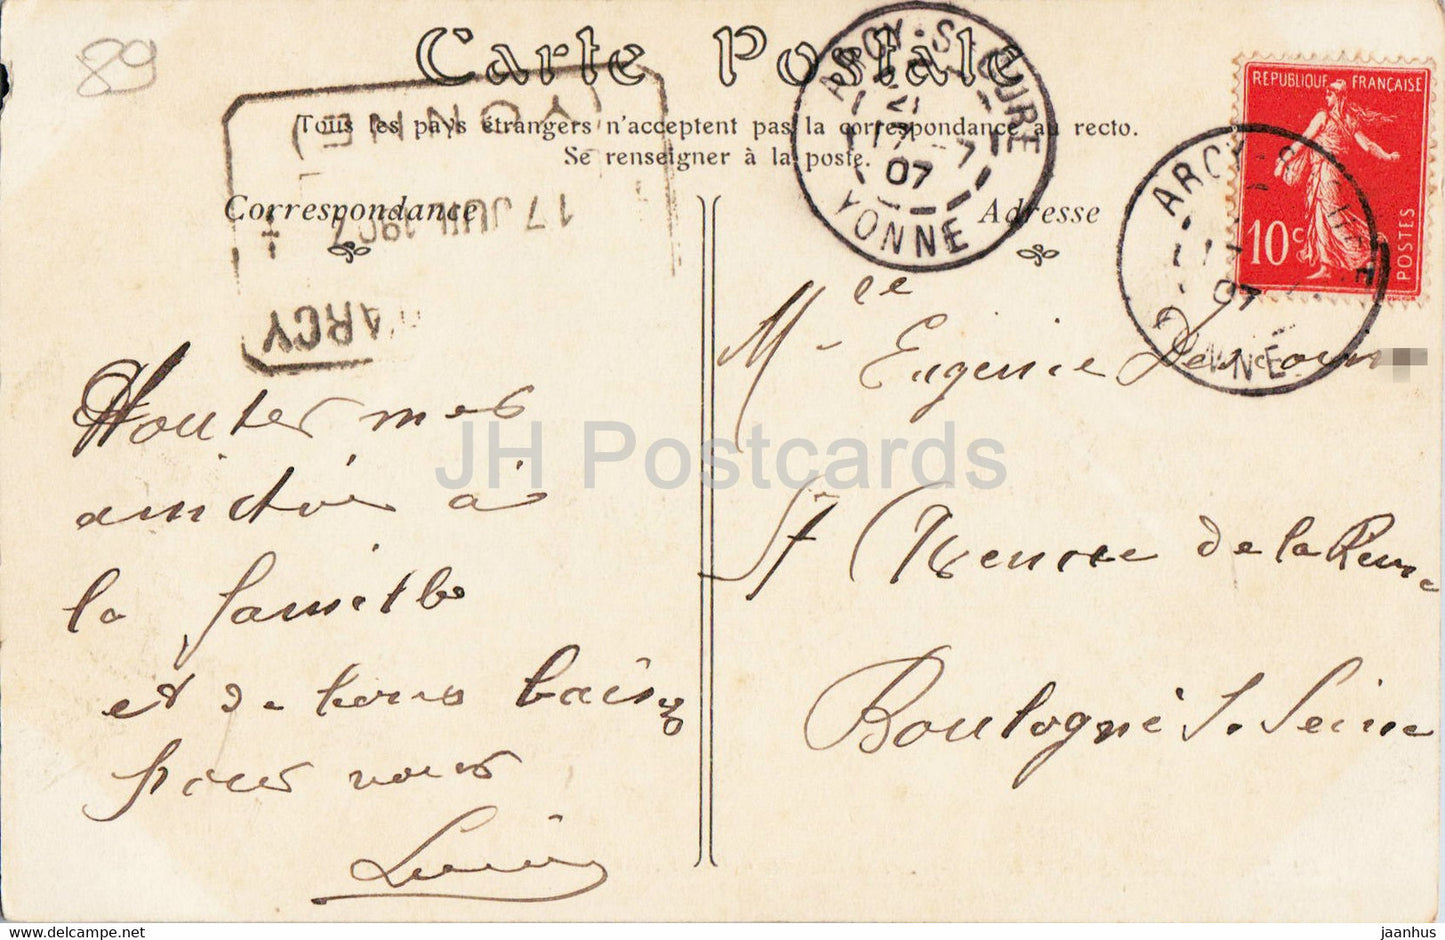 89
Carte Postale
Tous les pays étrangers n'acceptent pas la correspondance au recto.
Se renseigner à la poste.
Correspondance
Adresse
ARCY-S-CURE
21
17 -7
07
YONNE
REPUBLIQUE FRANÇAISE
10c
POSTES
ARCY-S-CURE
17
07
YONNE
YONNE
17 JUIL 1907
ARCY
Mlle Eugenie
de la Reine
Boulogne S. Seine
Toutes mes
amitiés à
la famille
et de bons baisers
pour vous
JH Postcards
jaanhus